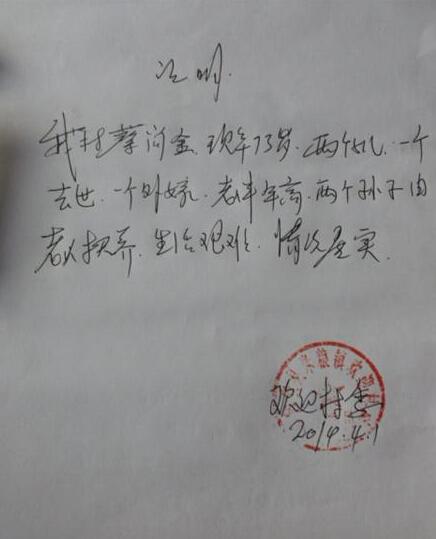 证明.
我村蔡河金.现年73岁.两个儿.一个
去世.一个外嫁.老半年高.两个孙子由
老人抚养.生活艰难.情况属实.
欢迎村委
2014.4.1